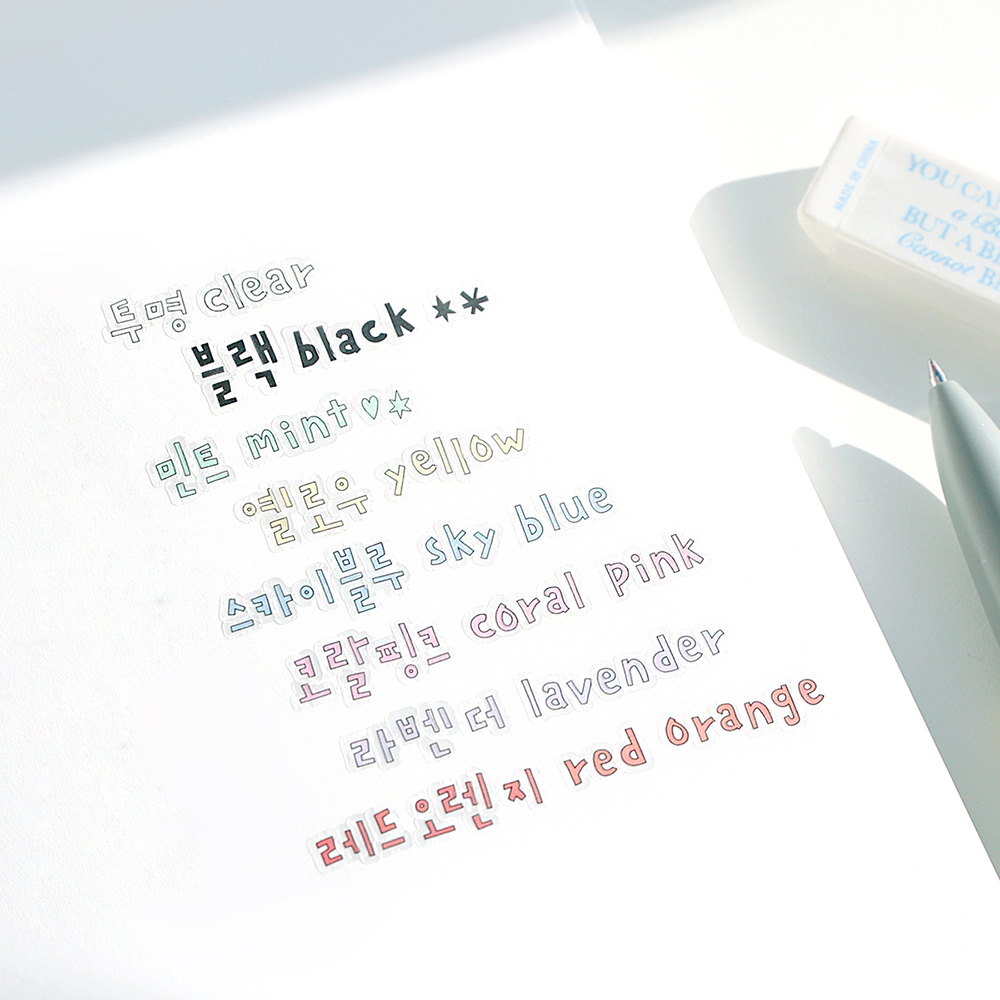 투명 clear
블랙 black **
민트 mint♡*
옐로우 yellow
스카이블루 sky blue
코랄핑크 coral pink
라벤더 lavender
레드오렌지 red orange
MADE IN CHINA
YOU CAN
BUT A
Cannot